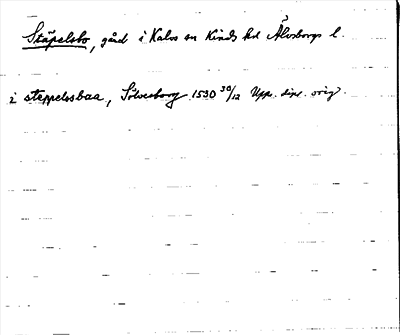 Stäpelsbo, gård i Kalvs sn Kinds hd Älvsborgs l.
i steppelssbaa, Sölvesborg 1530 30/12 Upps. dipl. orig.